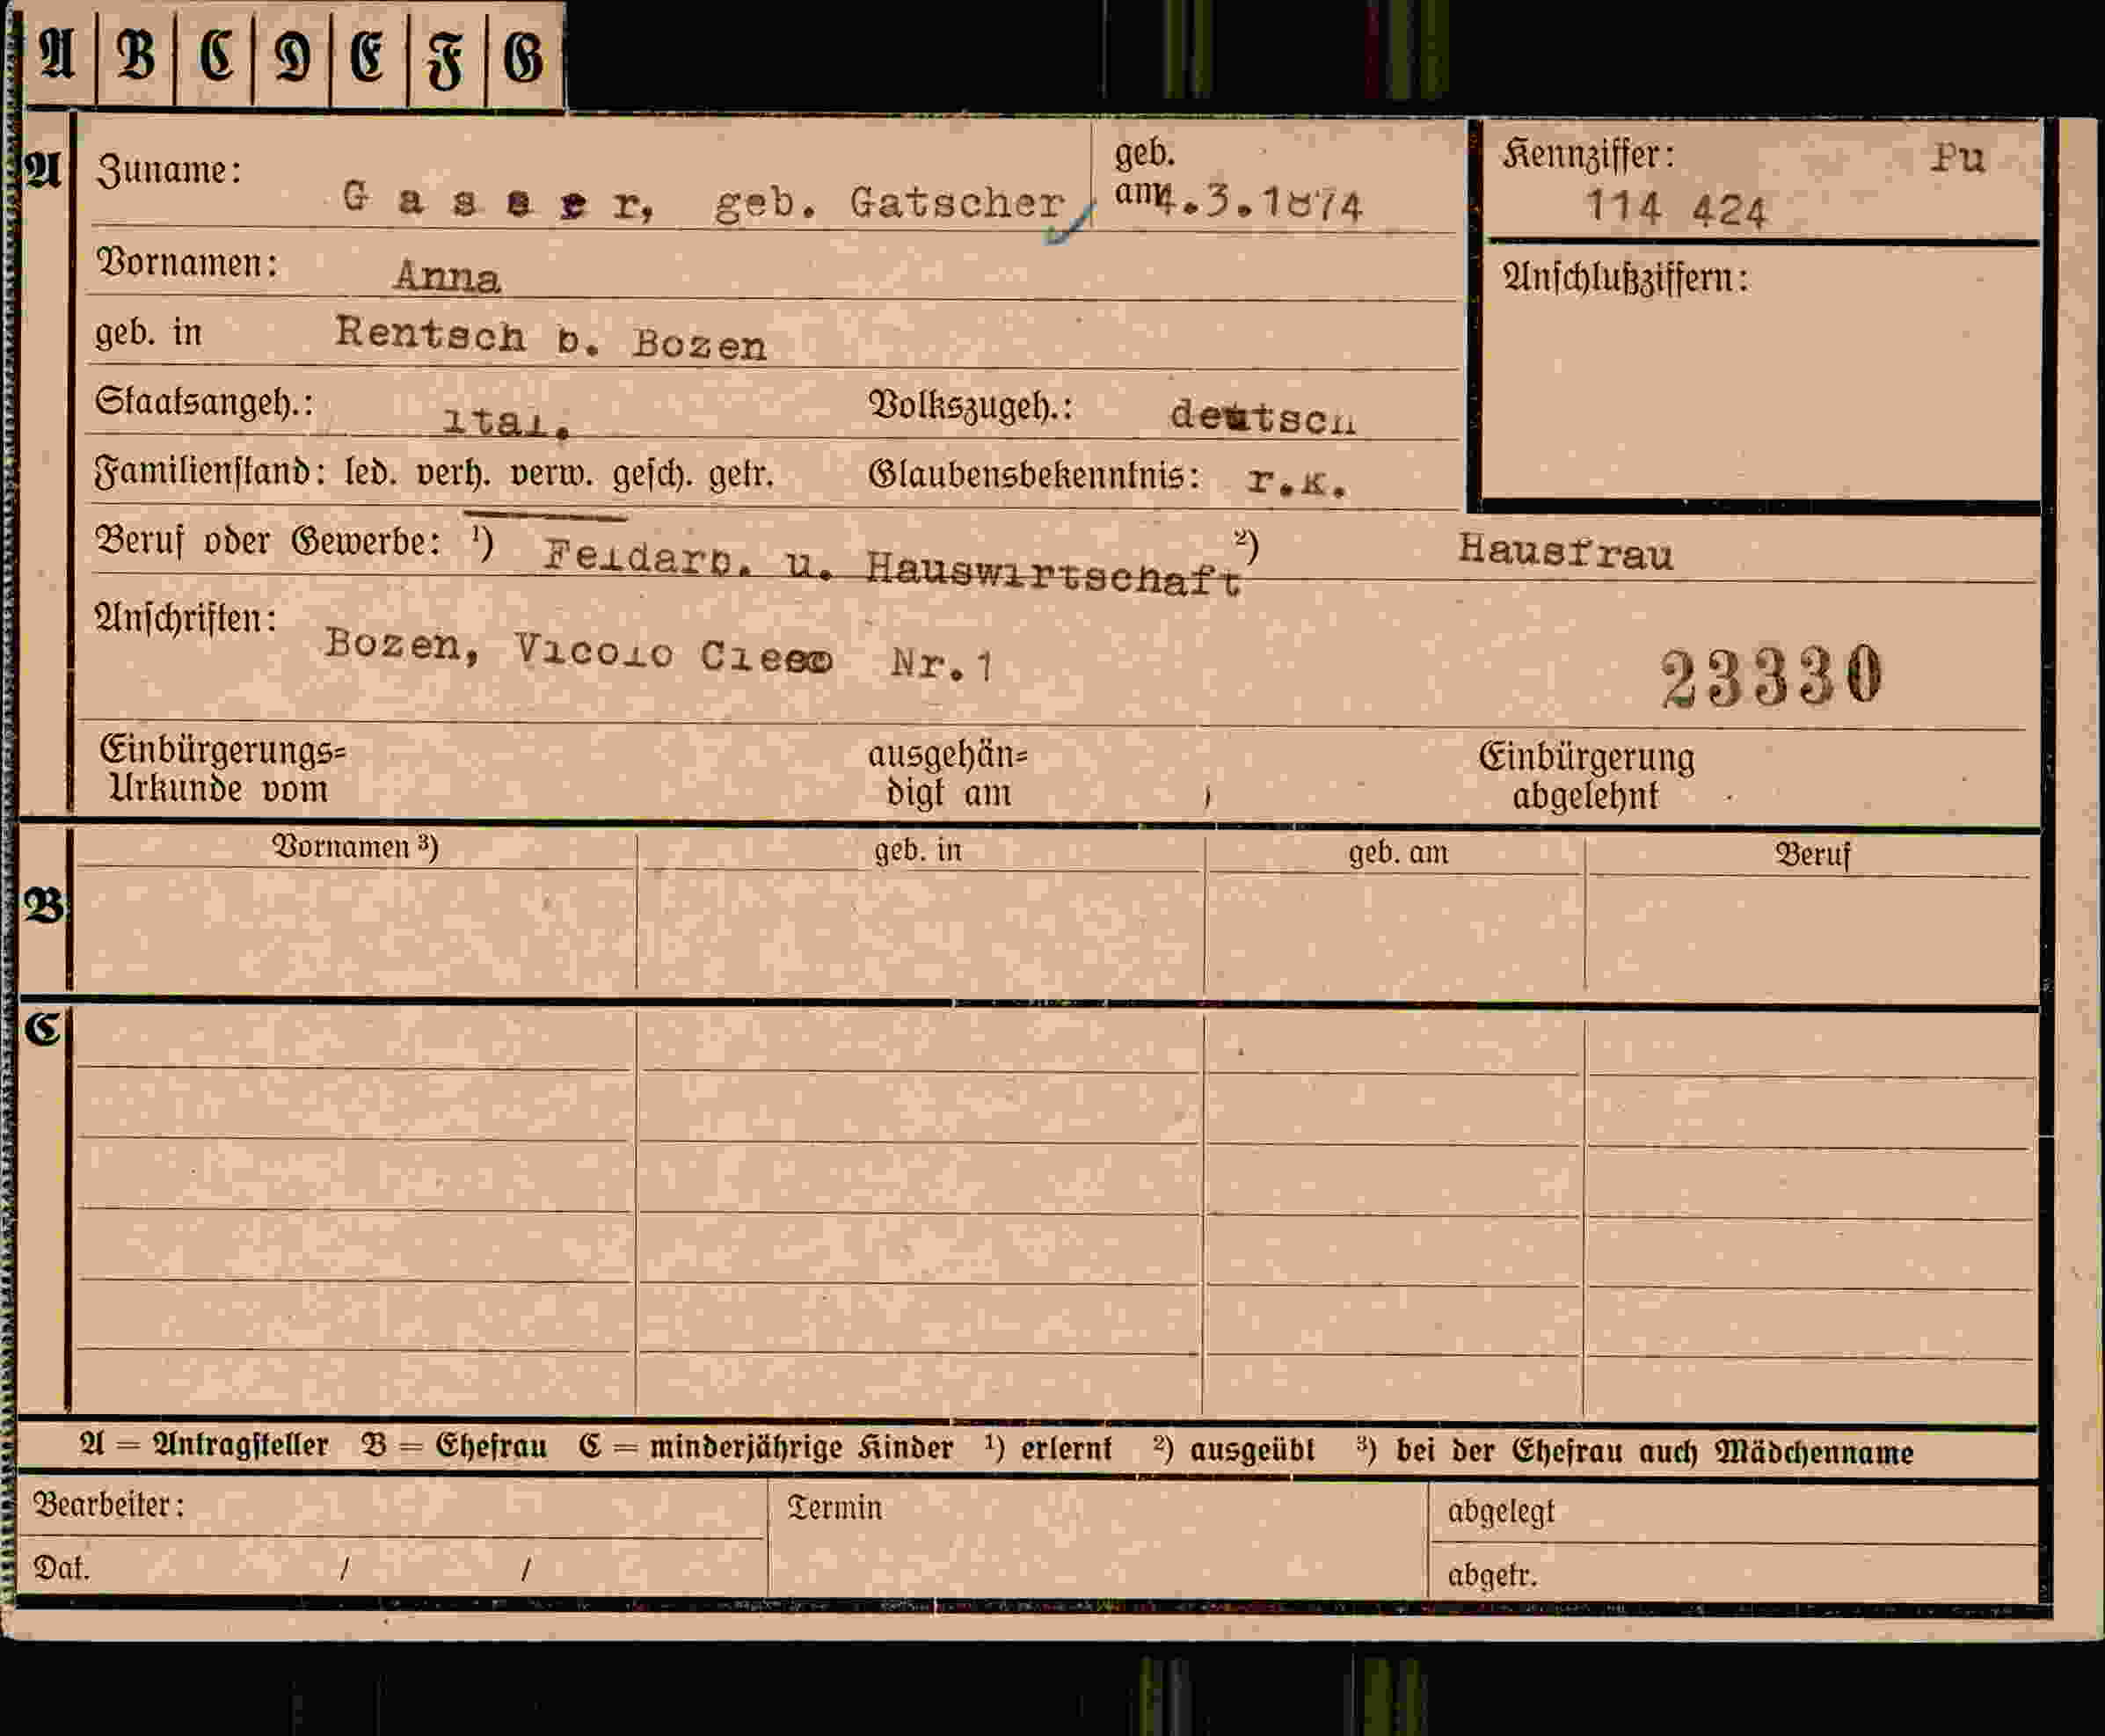 A B C D E F G
A Zuname: Gasser, geb. Gatscher geb. am 4.3.1874 Kennziffer: Pu
114 424
Vornamen: Anna Anschlußziffern:
geb. in Rentsch b. Bozen
Staatsangeh.: ital. Volkszugeh.: deutsch
Familienstand: led. verh. verw. gesch. getr. Glaubensbekenntnis: r.k.
Beruf oder Gewerbe: ¹) Feldarb. u. Hauswirtschaft ²) Hausfrau
Anschriften: Bozen, Vicolo Nr.1
23330
Einbürgerungs= ausgehän= Einbürgerung
Urkunde vom digt am abgelehnt
Vornamen ³) geb. in geb. am Beruf
B
C
A = Antragsteller B = Ehefrau C = minderjährige Kinder ¹) erlernt ²) ausgeübt ³) bei der Ehefrau auch Mädchenname
Bearbeiter: Termin abgelegt
Dat. / / abgetr.